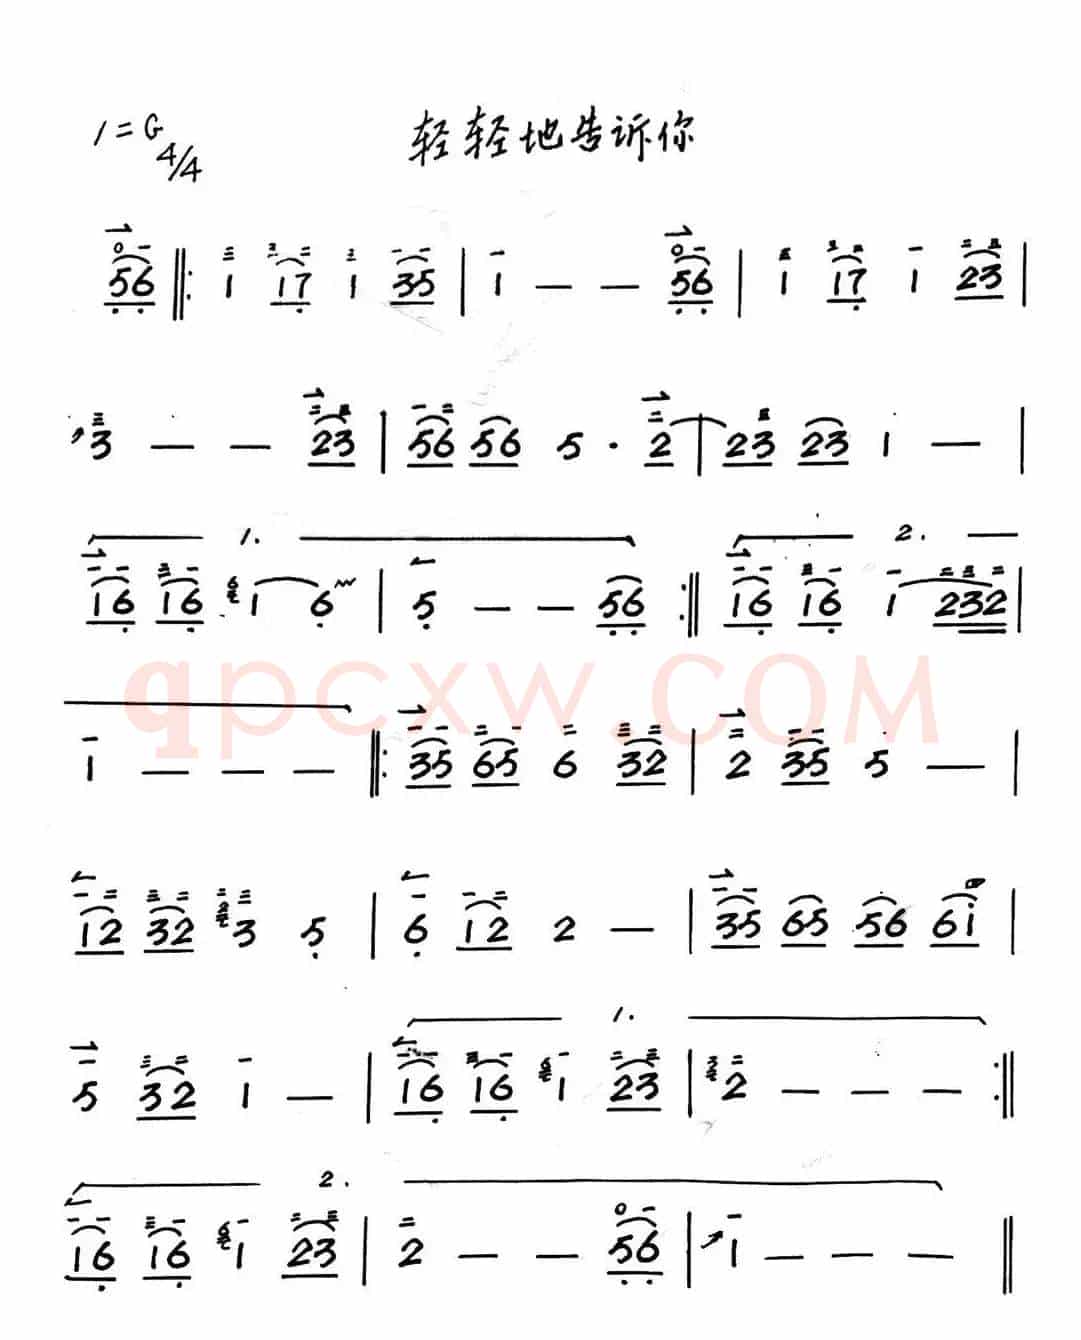 1=G 4/4 轻轻地告诉你
56 ‖: 1 17 1 35 | 1 — — 56 | 1 17 1 23 |
3 — — 23 | 56 56 5 · 2 | 23 23 1 — |
1. 2.
16 16 6 1 6 | 5 — — 56 :‖ 16 16 1 232 |
qpcxw.COM
1 — — — ‖: 35 65 6 32 | 2 35 5 — |
12 32 3 5 | 6 12 2 — | 35 65 56 6i |
1.
5 32 1 — | 16 16 6 1 23 | 3 2 — — — :‖
2.
16 16 6 1 23 | 2 — — 56 | 1 — — — ‖